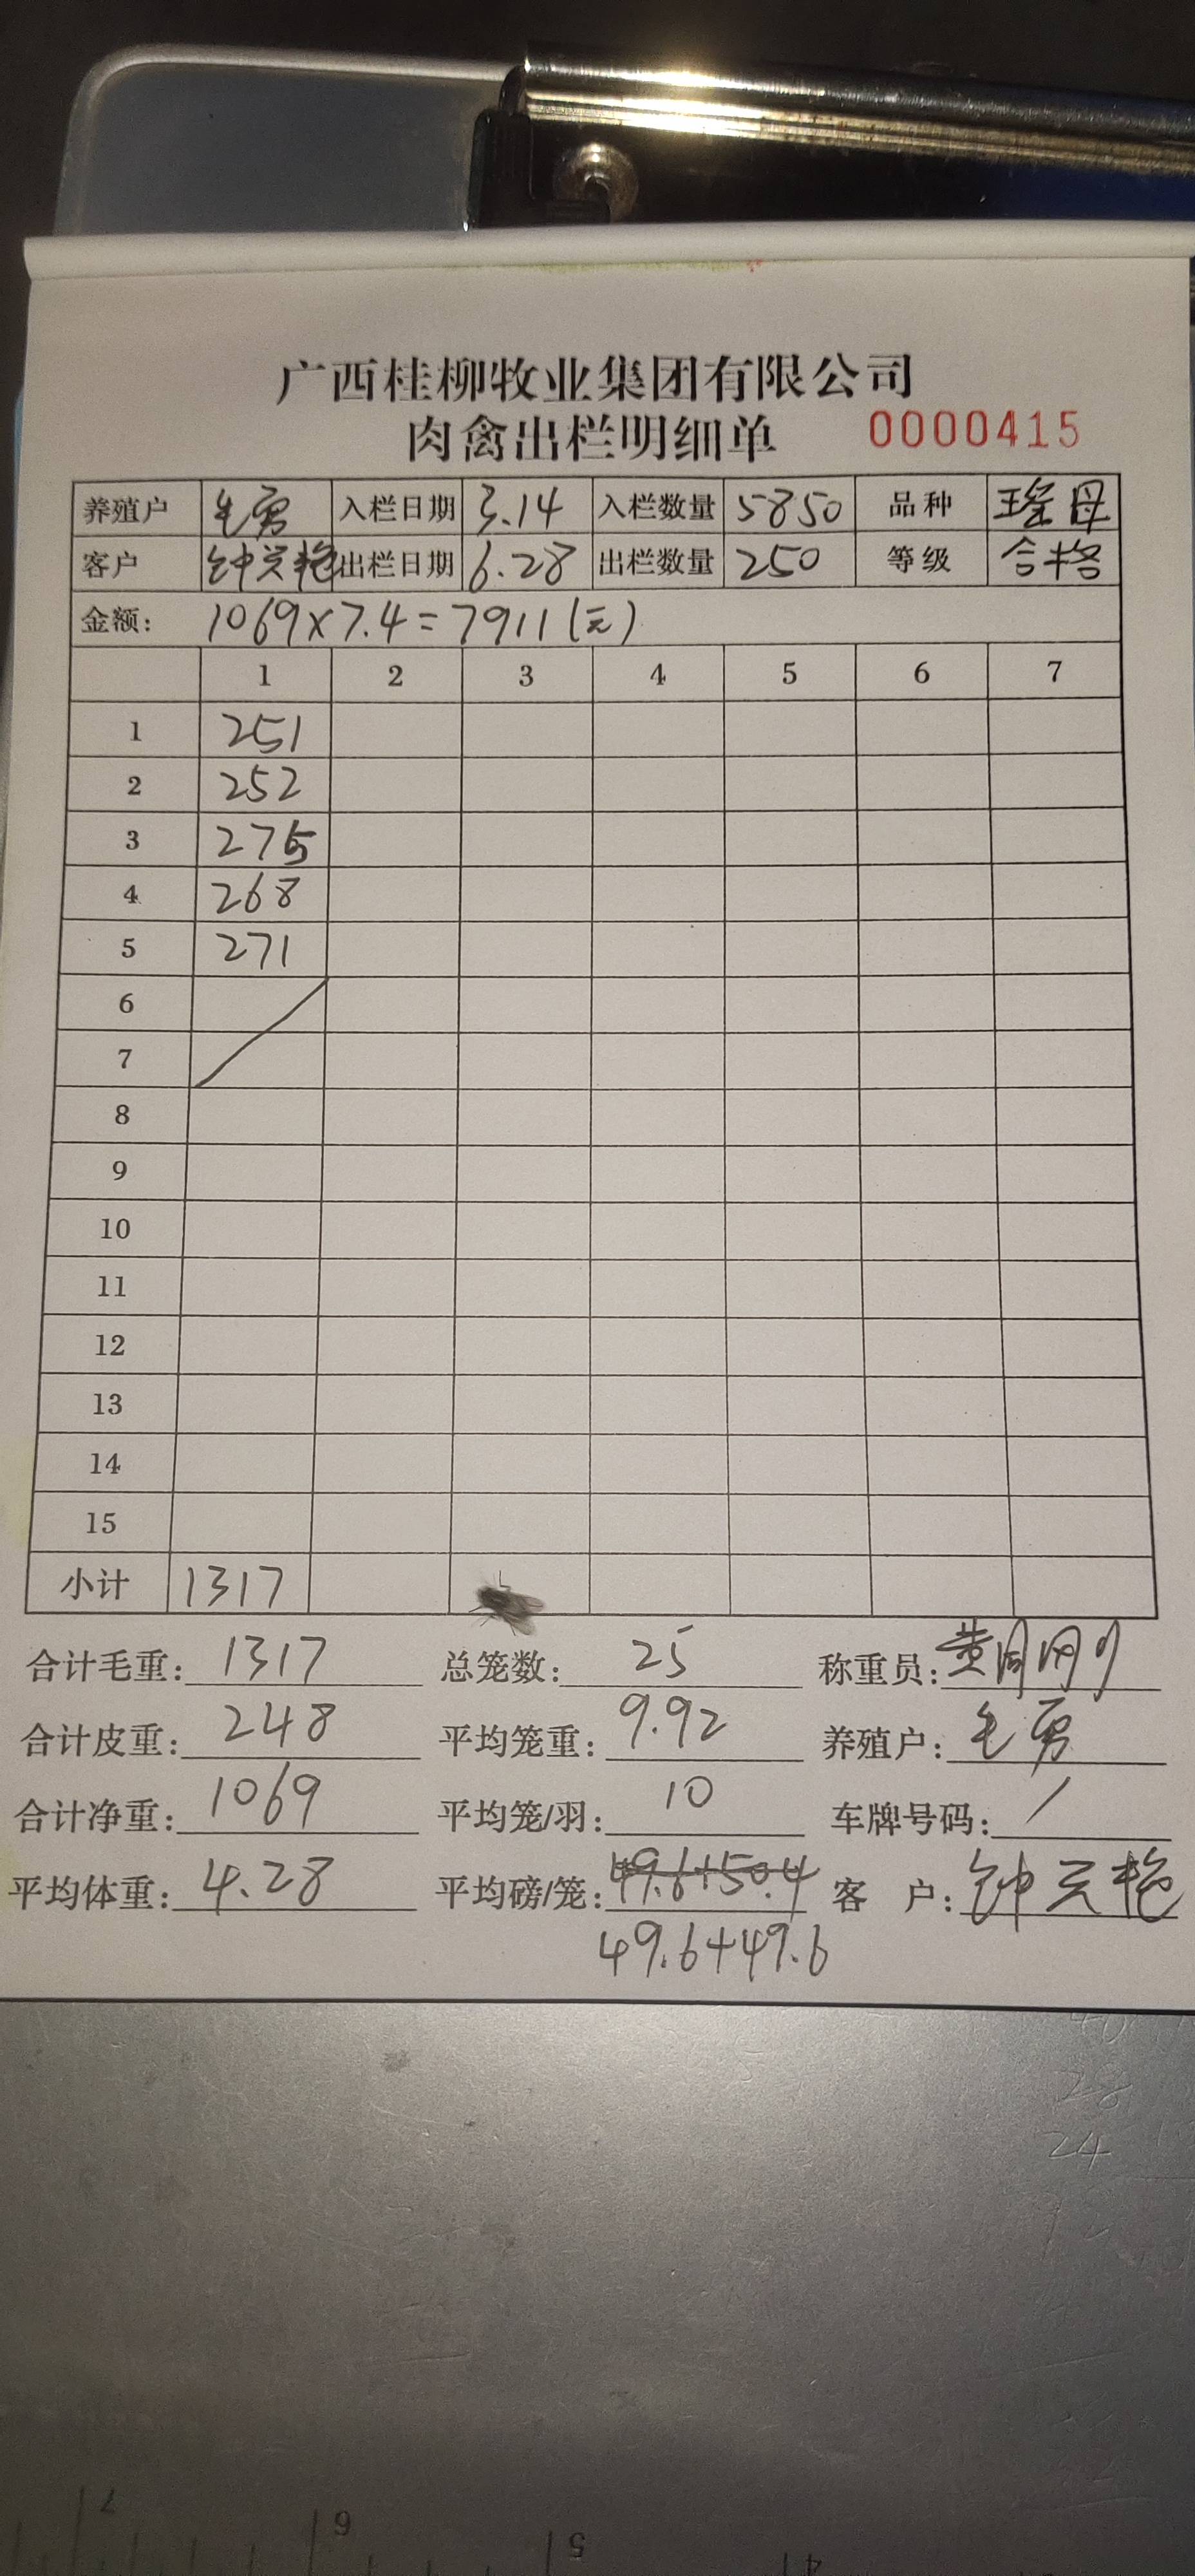 广西桂柳牧业集团有限公司
肉禽出栏明细单 0000415
养殖户 毛勇 入栏日期 3.14 入栏数量 5850 品种 瑶母
客户 钟兴艳 出栏日期 6.28 出栏数量 250 等级 合格
金额: 1069×7.4=7911(元)
1 2 3 4 5 6 7
1 251
2 252
3 275
4 268
5 271
6
7
8
9
10
11
12
13
14
15
小计 1317
合计毛重: 1317 总笼数: 25 称重员:
合计皮重: 248 平均笼重: 9.92 养殖户: 毛勇
合计净重: 1069 平均笼/羽: 10 车牌号码: /
平均体重: 4.28 平均磅/笼: 49.6+50.4 客 户: 钟兴艳
49.6+49.6
28
24
7 6 5 4